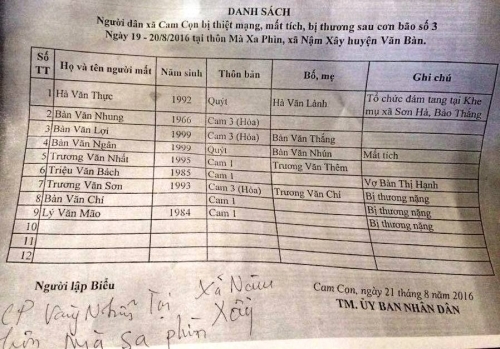 DANH SÁCH
Người dân xã Cam Cọn bị thiệt mạng, mất tích, bị thương sau cơn bão số 3
Ngày 19 - 20/8/2016 tại thôn Mà Xa Phìn, xã Nậm Xây huyện Văn Bàn.
Số TT Họ và tên người mất Năm sinh Thôn bản Bố, mẹ Ghi chú
1 Hà Văn Thực 1992 Quýt Hà Văn Lành Tổ chức đám tang tại Khe mụ xã Sơn Hà, Bảo Thắng
2 Bàn Văn Nhung 1966 Cam 3 (Hòa)
3 Bàn Văn Lợi 1999 Cam 3 (Hòa) Bàn Văn Thắng
4 Bàn Văn Ngân 1999 Quýt Bàn Văn Nhún Mất tích
5 Trương Văn Nhất 1995 Cam 1 Trương Văn Thêm
6 Triệu Văn Bách 1985 Cam 1 Vợ Bàn Thị Hạnh
7 Trương Văn Sơn 1993 Cam 3 (Hòa) Trương Văn Chỉ Bị thương nặng
8 Bàn Văn Chí Cam 1 Bị thương nặng
9 Lý Văn Mão 1984 Cam 1 Bị thương nặng
10
11
12
Người lập Biểu
Cam Cọn, ngày 21 tháng 8 năm 2016
TM. ỦY BAN NHÂN DÂN
CP Vàng Nhân Tại Xã Nậm Xây
Mà Sa phìn